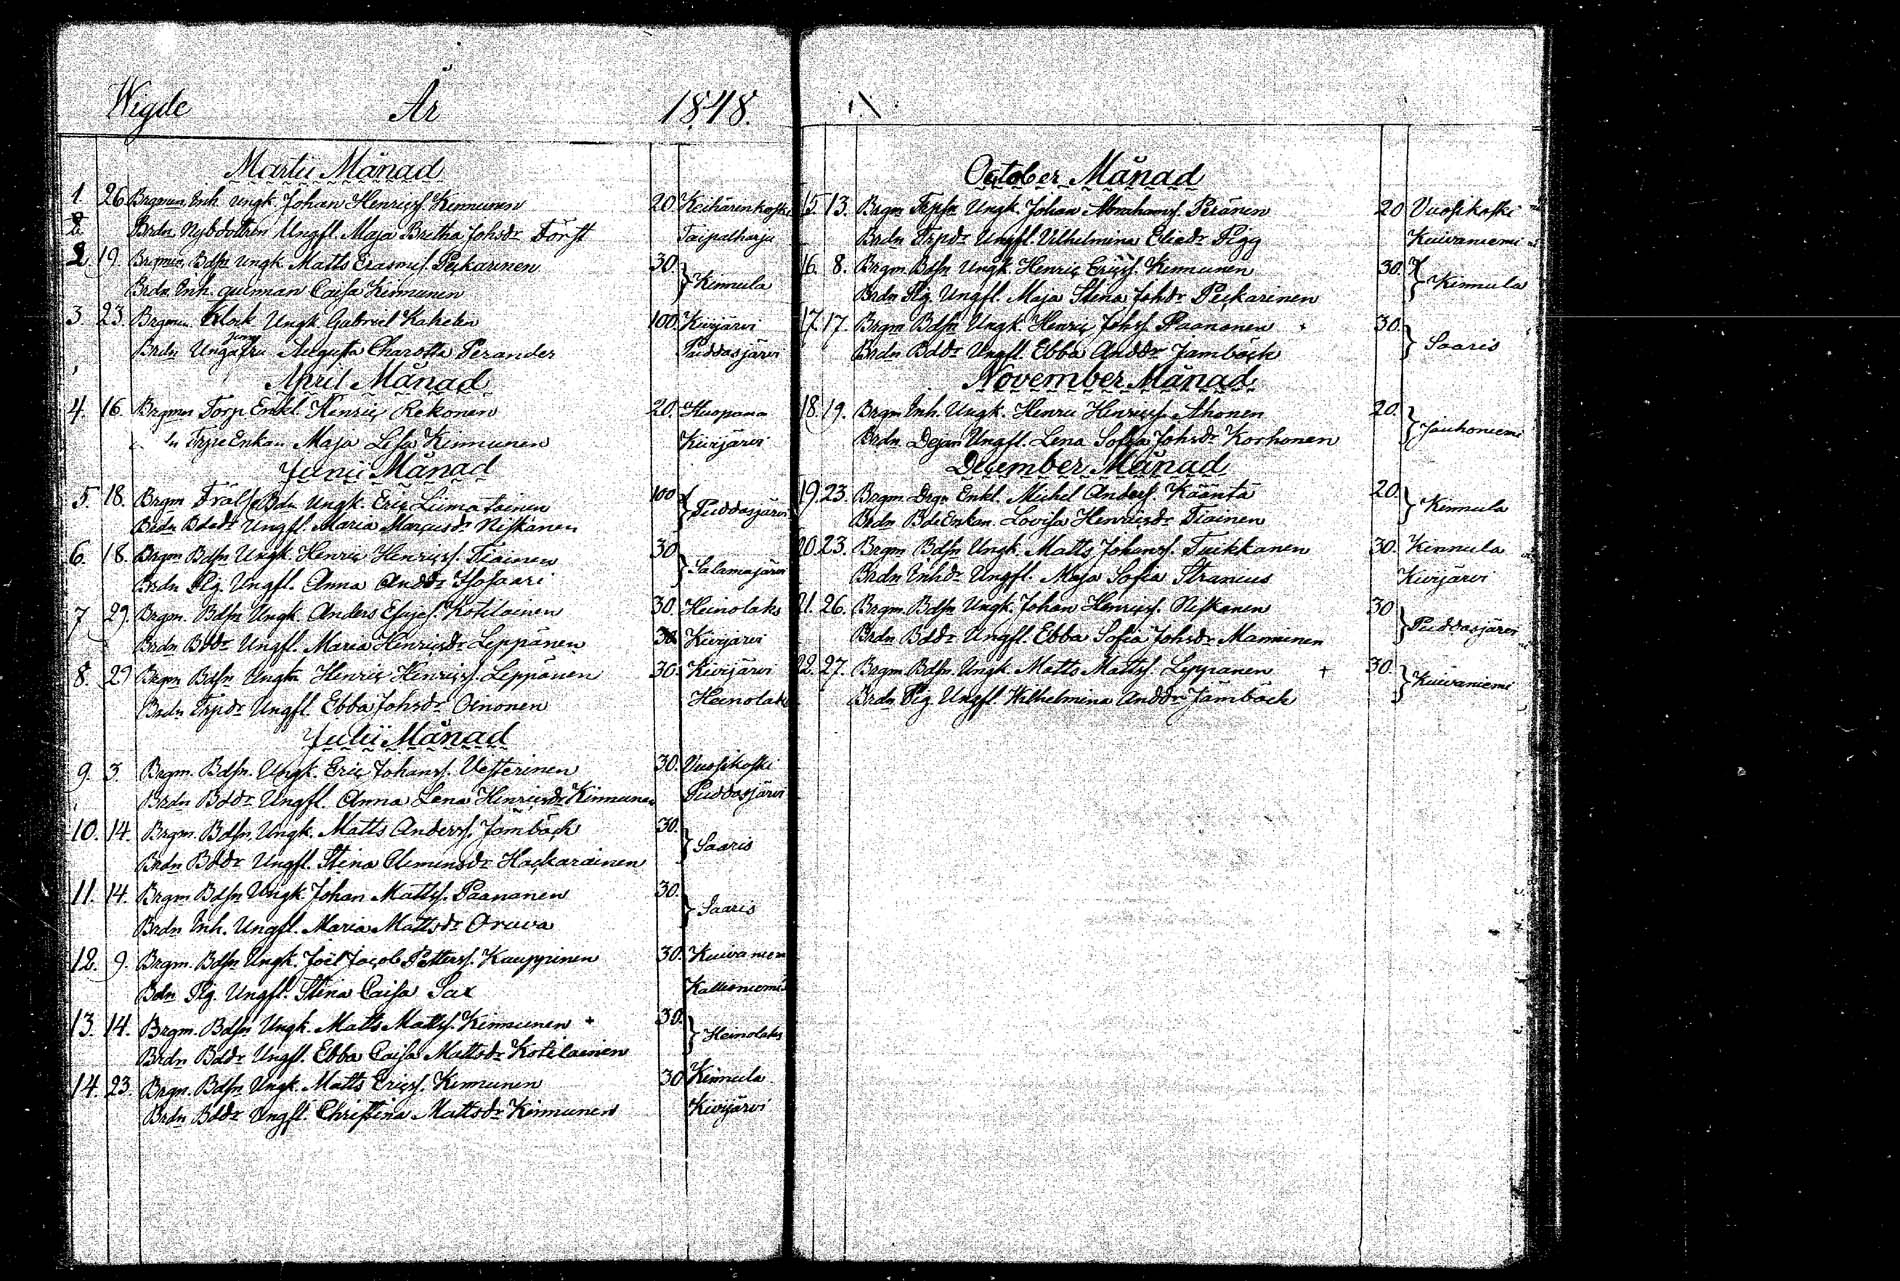 Wigde År 1848.
Martii Månad
1. 26 Brgmn, Inh. ungk. Johan Henricss. Kinnunen 20. Keihärinkoski
Brdn Nybdottren Ungfl. Maja Bretha Johsdr Först Taipalharju
2 19. Brgmn, Bdsn Ungk. Matts Erasmiss. Peckarinen 30. } Kinnula
Brdn Inh. quinnan Caisa Kinnunen
3. 23. Brgmn. Klock Ungk. Gabriel Kahelin 100. Kivijärvi
Brdn Ungajungfru Augusta Charotta Perander Puddasjärvi
April Månad
4. 16. Brgmn Torp Enkl. Henric Rekonen 20.
Trpre Enkan Maja Lisa Kinnunen Kivijärvi
Junii Månad
5. 18. Brgm. Frälse Bdn Ungk. Eric Liimatainen 100 } Puddasjärvi
Brdn Bdedr Ungfl. Maria Marcusdr Niskanen
6. 18. Brgm Bdsn Ungk. Henric Henricss. Tiainen 30 } Salamajärvi
Brdn Pig. Ungfl. Anna Andsdr Isosaari
7 29. Brgm. Bdsn Ungk. Anders Esajes. Kotilainen 30. Heinolaks
Brdn Bddr Ungfl. Maria Henricsdr Leppänen 30. Kivijärvi
8. 29 Brgm Bdsn Ungk Henric Henricss. Leppänen 30. Kivijärvi
Brdn Trpdr Ungfl. Ebba Johsdr Oinonen Heinolaks
Julii Månad
9. 3. Brgm. Bdsn. Ungk. Eric Johanss. Vesterinen 30. Vuosikoski
Brdn Bddr Ungfl. Anna Lena Henricsdr Kinnunen Puddasjärvi
10. 14. Brgm. Bdsn, Ungk. Matts Anderss. Jämbäck 30. } Saaris
Brdn Bddr Ungfl. Stina Clemensdr Hackarainen
11. 14. Brgm Bdsn Ungk. Johan Mattss. Paananen 30. } Saaris
Brdn Inh. Ungfl. Maria Mattsdr Orava
12. 9. Brgm. Bdsn Ungk. Joel Jacob Petterss. Kauppinen 30. Kuivaniemi
Bdn Pig. Ungfl. Stina Caisa Sax Kallioniemi
13. 14. Brgm. Bdsn Ungk. Matts Mattss. Kinnunen + 30. } Heinolaks
Brdn Bddr Ungfl. Ebba Caisa Mattsdr Kotilainen
14. 23. Brgm. Bdsn Ungk. Matts Ericss. Kinnunen 30 Kinnula
Brdn Bddr Ungfl. Christina Mattsdr Kinnunen Kivijärvi
October Månad
15. 13. Brgm Trpsn Ungk. Johan Abrahamss. Peränen 20 Vuosikoski
Brdn Trpdr Ungfl. Vilhelmina Eliedr Pigg Kuivaniemi
16. 8. Brgm. Bdsn Ungk. Henric Ericss. Kinnunen 30. } Kinnula
Brdn Pig. Ungfl. Maja Stina Johsdr Peckarinen
17. 17. Brgm Bdsn Ungk. Henric Johss. Paananen 30. } Saaris
Brdn Bddr Ungfl. Ebba Andsdr Jämbäck
November Månad
18. 19. Brgm Inh. Ungk. Henric Henricss. Ahonen 20. } Jauhoniemi
Brdn Dejan Ungfl. Lena Sofia Johsdr Korhonen
December Månad
19. 23. Brgm. Drgn Enkl. Michel Anderss. Kääntä 20. } Kinnula
Brdn Bde Enkan. Lovisa Henricsdr Tiainen
20. 23. Brgm Bdsn Ungk. Matts Johanss. Tuikkanen 30. Kinnula
Brdn Inhdr Ungfl. Maja Sofia Stranius Kivijärvi
21. 26. Brgm. Bdsn Ungk. Johan Henricss. Niskanen 30 } Puddasjärvi
Brdn Bddr Ungfl. Ebba Sofia Johsdr Manninen
22. 27. Brgm Bdsn Ungk Matts Mattss. Leppanen + 30. } Kuivaniemi
Brdn Pig. Ungfl. Wilhelmina Andsdr Jämbäck